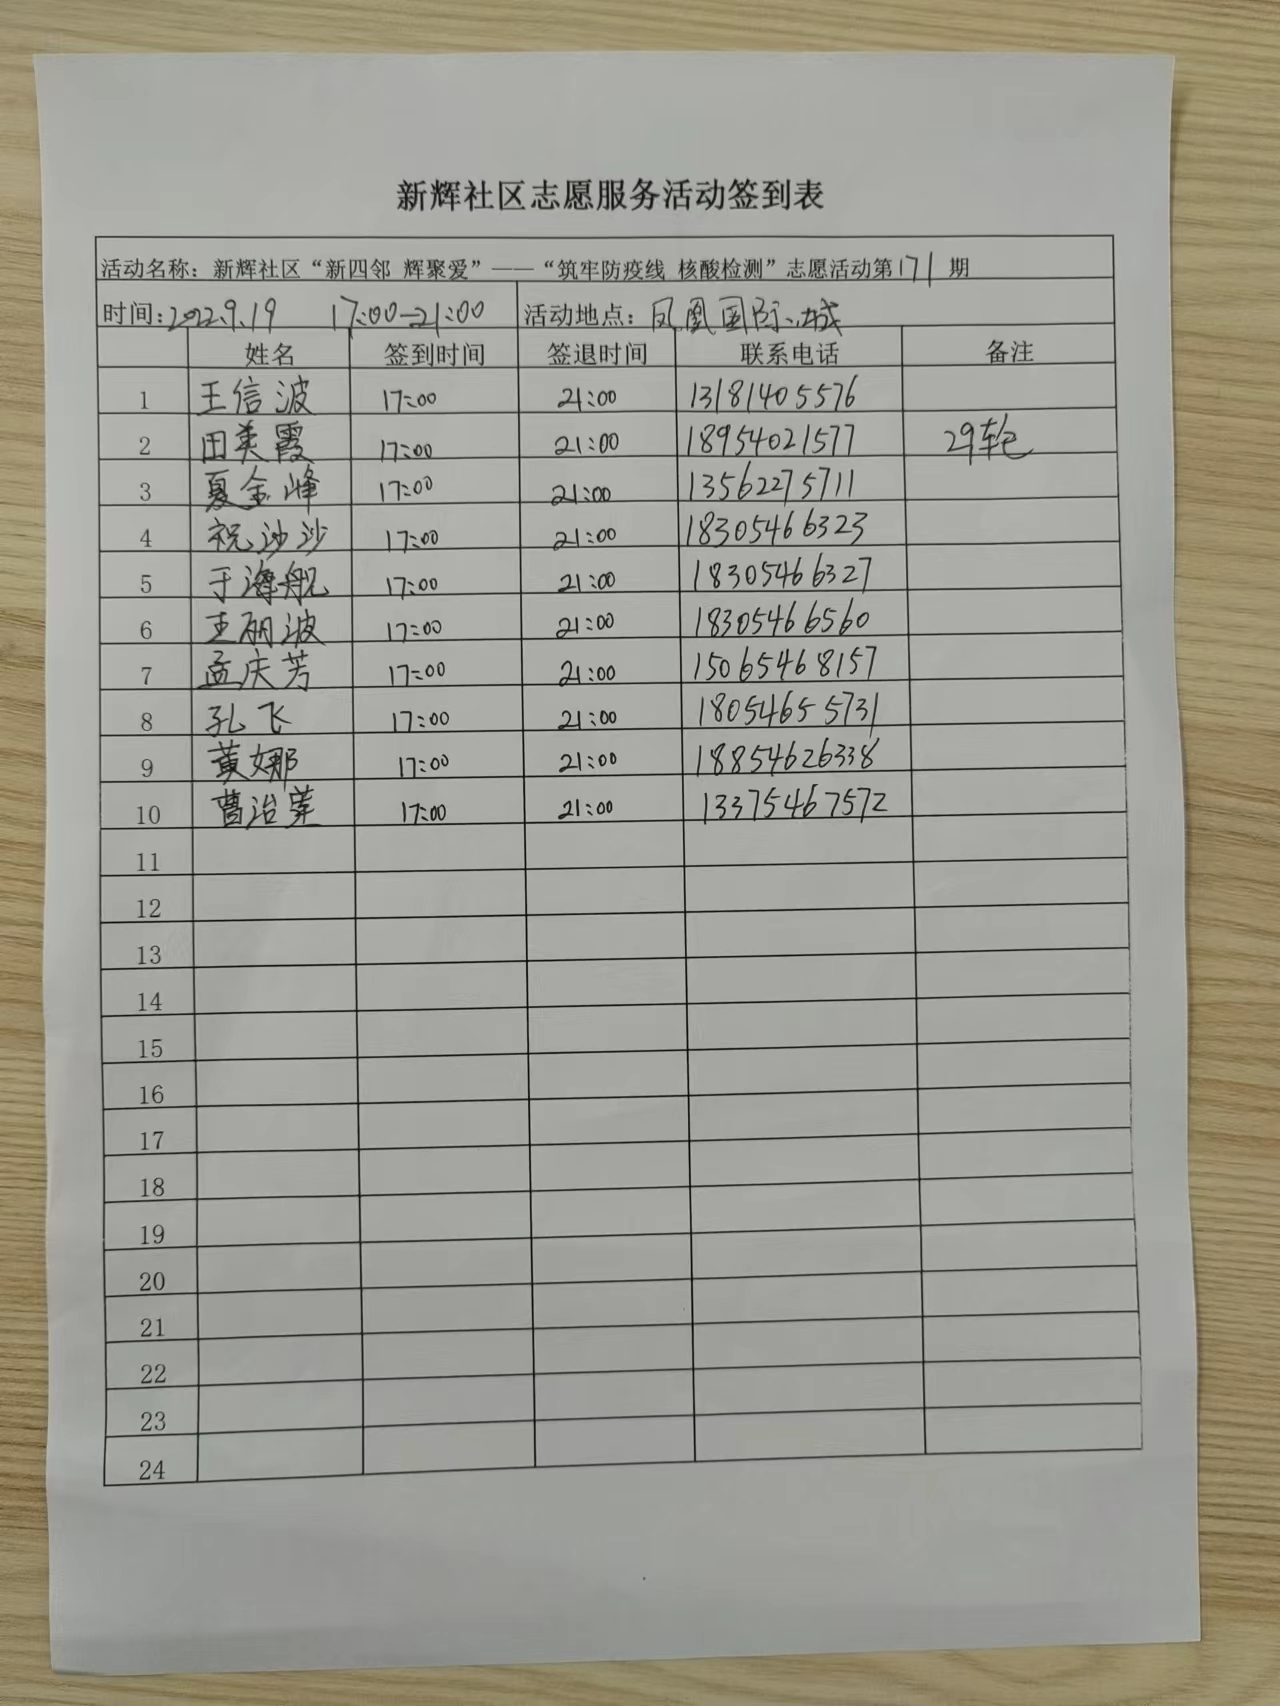 新辉社区志愿服务活动签到表
活动名称：新辉社区“新四邻 辉聚爱”——“筑牢防疫线 核酸检测”志愿活动第171期
时间：2022.9.19 17:00-21:00 活动地点：凤凰国际城
姓名 签到时间 签退时间 联系电话 备注
1 王信波 17:00 21:00 13181405576
2 田美霞 17:00 21:00 18954021577 29轮
3 夏金峰 17:00 21:00 13562275711
4 祝沙沙 17:00 21:00 18305466323
5 于海舰 17:00 21:00 18305466327
6 王丽波 17:00 21:00 18305466560
7 孟庆芳 17:00 21:00 15065468157
8 孔飞 17:00 21:00 18054655731
9 黄娜 17:00 21:00 18854626338
10 曹治莲 17:00 21:00 13375467572
11
12
13
14
15
16
17
18
19
20
21
22
23
24